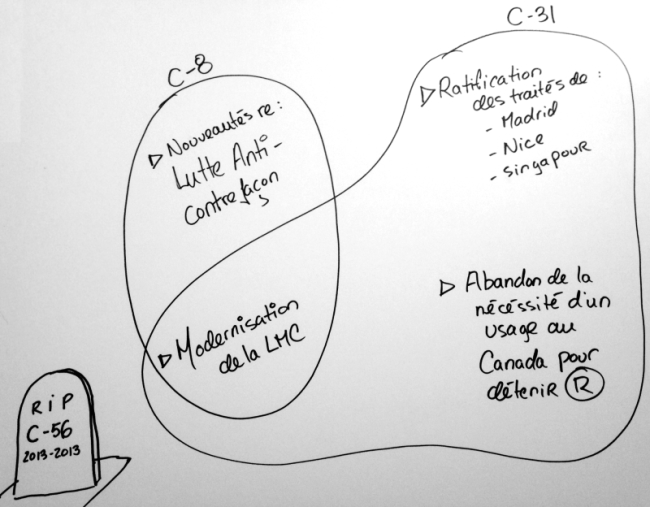 C-31
C-8
▷ Ratification
des traités de :
- Madrid
- Nice
- Singapour
▷ Nouveautés re:
Lutte Anti-
Contrefaçon
▷ Abandon de la
nécéssité d'un
usage au
Canada pour
détenir Ⓡ
▷ Modernisation
de la LMC
RiP
C-56
2013-2013